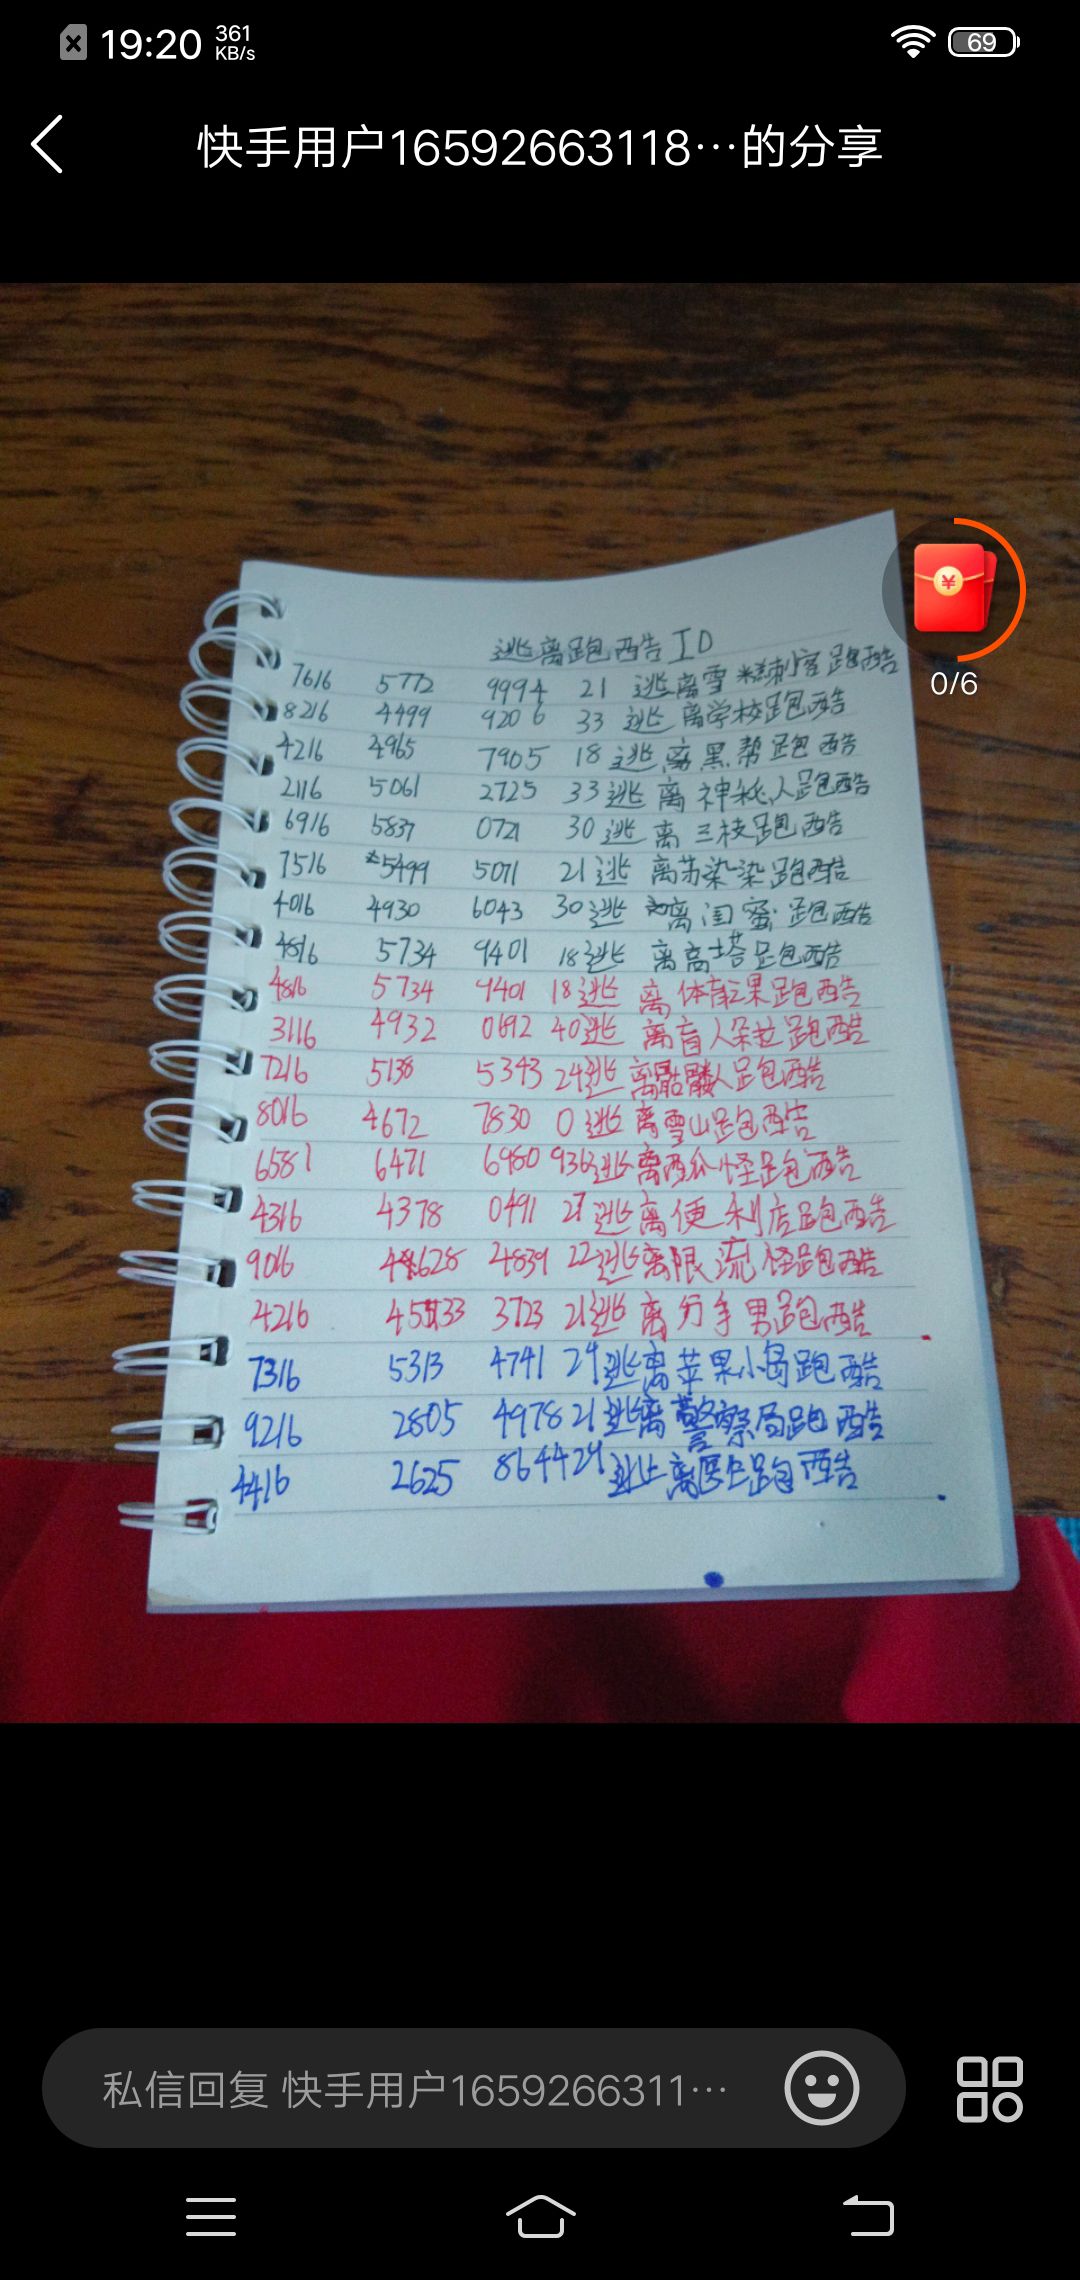 19:20 361 KB/s 69
快手用户16592663118…的分享
0/6
逃离跑酷ID
7616 5772 9994 21 逃离雪糕刺客跑酷
8216 4499 9206 33 逃离学校跑酷
4216 4965 7905 18 逃离黑帮跑酷
2116 5061 2725 33 逃离神秘人跑酷
6916 5837 0721 30 逃离三枝跑酷
7516 5499 5071 21 逃离苏染染跑酷
4016 4930 6043 30 逃离闺蜜跑酷
4816 5734 9401 18 逃离高塔跑酷
4816 5734 9401 18 逃离体育跑酷
3116 4932 0692 40 逃离盲人跑酷
7216 5138 5343 24 逃离骷髅人跑酷
8016 4672 7830 0 逃离雪山跑酷
6581 6471 6980 936 逃离西瓜怪跑酷
4316 4378 0491 27 逃离便利店跑酷
9016 4628 4839 22 逃离限流怪跑酷
4216 4533 3723 21 逃离分手男跑酷
7316 5313 4741 24 逃离苹果小岛跑酷
9216 2805 4978 21 逃离警察局跑酷
4416 2625 8644 24 逃离跑酷
私信回复 快手用户1659266311…